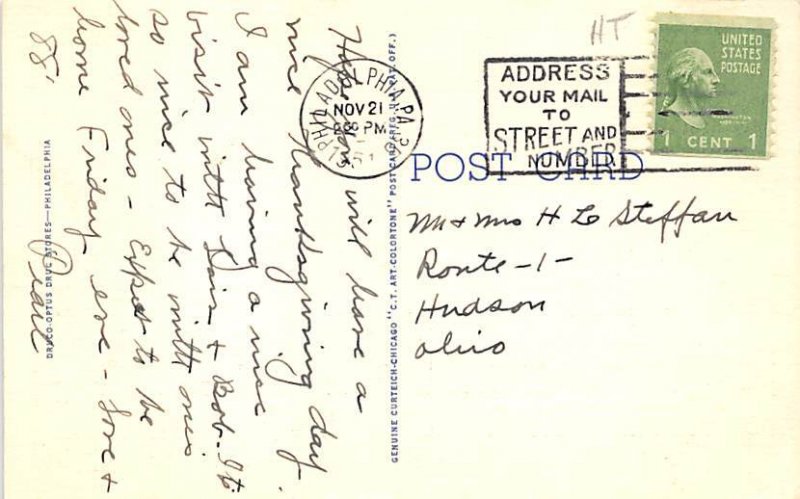 HT
UNITED
STATES
POSTAGE
1 CENT 1
PHILADELPHIA, PA.
NOV 21
PM
1951
ADDRESS
YOUR MAIL
TO
STREET AND
NUMBER
POST CARD
Mr & Mrs H L Steffan
Route -1-
Hudson
Ohio
Hope you will have a
nice thanksgiving day.
I am having a nice
visit with Dais & Bob. It
so nice to be with ones
loved ones - Expect to be
home Friday eve - Love &
88'
Pearl
GENUINE CURTEICH-CHICAGO "C. T. ART-COLORTONE" POST CARD (REG. U. S. PAT. OFF.)
DRUCO-OPTUS DRUG STORES—PHILADELPHIA